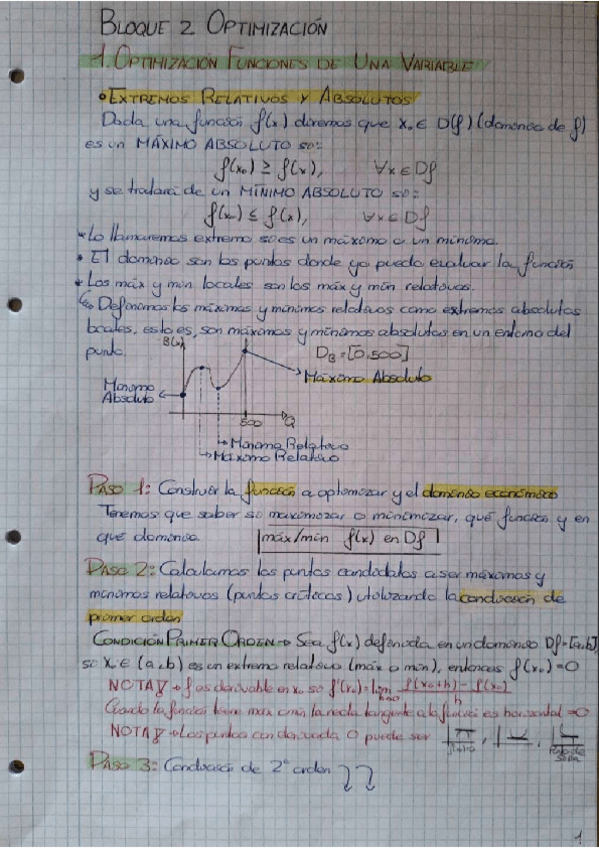 BLOQUE 2 OPTIMIZACIÓN
1. OPTIMIZACIÓN FUNCIONES DE UNA VARIABLE
• EXTREMOS RELATIVOS Y ABSOLUTOS
Dada una función f(x) diremos que x₀ ∈ D(f) (dominio de f)
es un MÁXIMO ABSOLUTO si:
f(x₀) ≥ f(x), ∀x ∈ Df
y se tratará de un MÍNIMO ABSOLUTO si:
f(x₀) ≤ f(x), ∀x ∈ Df
• Lo llamaremos extremo si es un máximo o un mínimo.
• El dominio son los puntos donde yo puedo evaluar la función
• Los máx y mín locales son los máx y mín relativos.
↳ Definimos los máximos y mínimos relativos como extremos absolutos
locales, esto es, son máximos y mínimos absolutos en un entorno del
punto.
B(x)
D_B = [0,500]
Máximo Absoluto
Mínimo
Absoluto
500
Q
Mínimo Relativo
Máximo Relativo
PASO 1: Construir la función a optimizar y el dominio económico
Tenemos que saber si maximizar o minimizar, qué función y en
qué dominio. máx/mín f(x) en Df
PASO 2: Calculamos los puntos candidatos a ser máximos y
mínimos relativos (puntos críticos) utilizando la condición de
primer orden
CONDICIÓN PRIMER ORDEN → Sea f(x) definida en un dominio Df=[a,b]
si x₀ ∈ (a,b) es un extremo relativo (máx o mín), entonces f'(x₀)=0
NOTA → f es derivable en x₀ si f'(x₀) = lim h→0 f(x₀+h) - f(x₀) / h
Cuando la función tiene máx o mín la recta tangente a la función es horizontal = 0
NOTA → Los puntos con derivada 0 puede ser
PASO 3: Condición de 2º orden
1